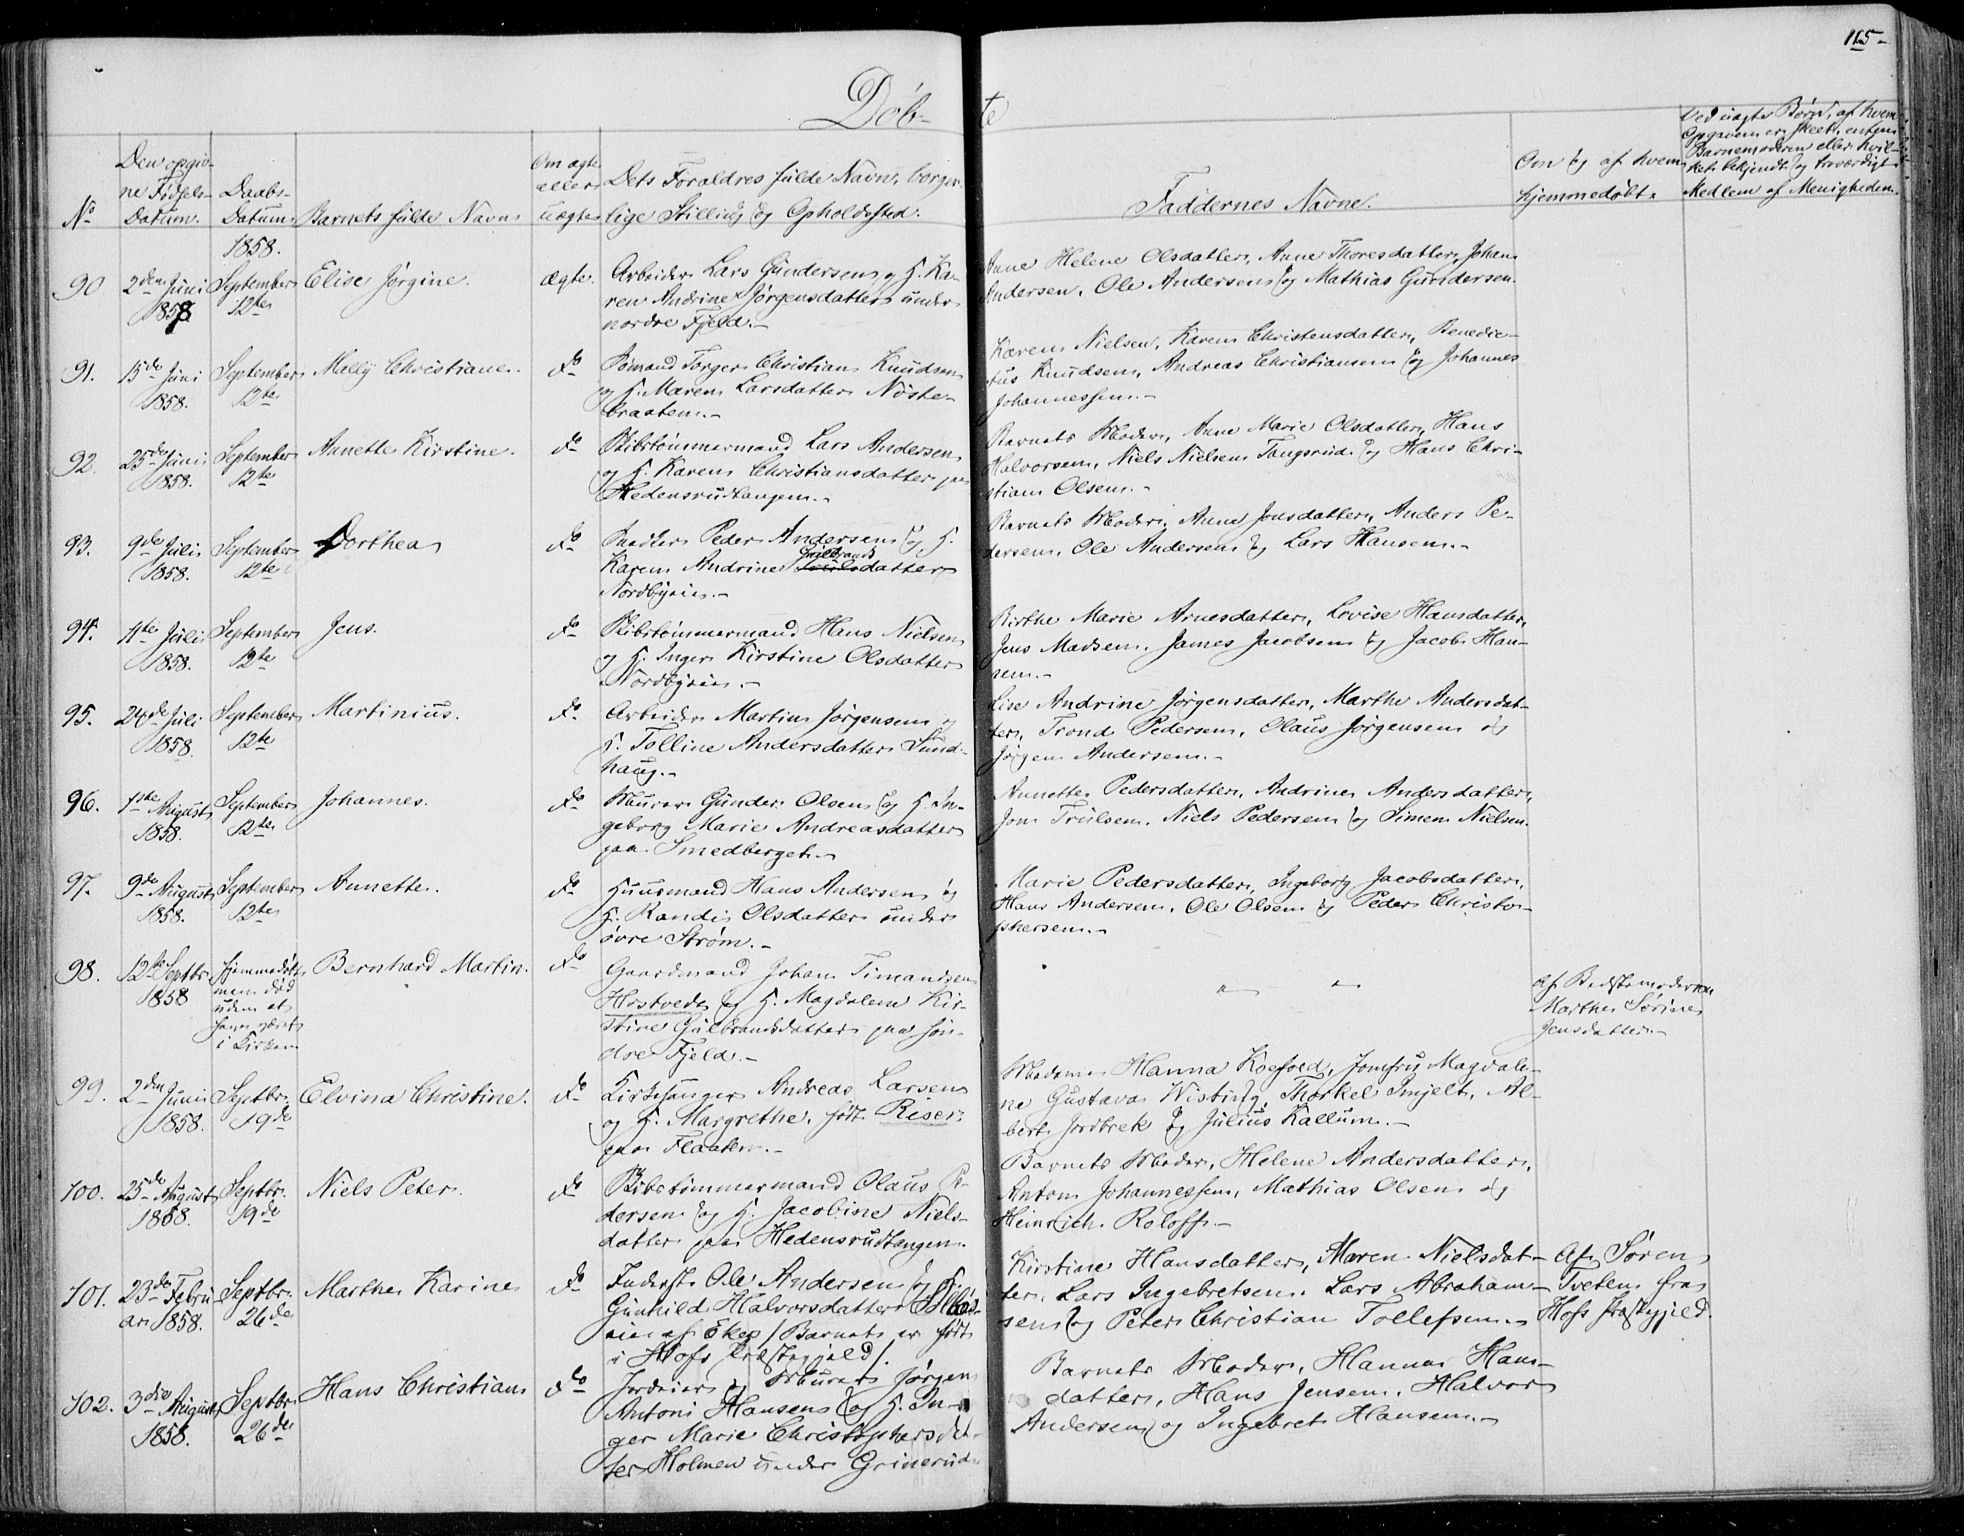 115-
Døb-te
No
Den opgiv-
ne Fødsels-
Datum.
Daabs-
Datum.
Barnets fulde Navn
Om ægte
eller
uægte
Dets Forældres fulde Navn, borger-
lige Stilling og Opholdssted.
Faddernes Navne.
Om og af hvem
hjemmedøbt.
Ved uægte Børn, af hvem
Opgaven er skeet, enten
Barnemoderen eller hvil-
ket bekjendt og troværdigt
Medlem af Menigheden.
1858.
90. 2den Juni September Elise Jørgine. ægte. Arbeider Lars Gundersen og H. Ka-
1858 12te ren Andrine Jørgensdatter under
nordre Fjeld.-
Anne Helene Olsdatter, Anne Thoresdatter, Johan
Andersen, Ole Andersen og Mathias Gundersen.
91. 15de Juni September Mally Christiane. do Sømand Torger Christian Knudsen
1858. 12te og H. Maren Larsdatter Nøste-
braaten.-
Karen Nielsen, Karen Christensdatter, Benedic-
tus Knudsen, Andreas Christiansen og Johannes
Johannessen.-
92. 25de Juni September Annette Kirstine. do Skibstømmermand Lars Andersen
1858. 12te og H. Karen Christiansdatter paa
Hedensrudtangen.-
Barnets Moder, Anne Marie Olsdatter, Hans
Halvorsen, Niels Nielsen Tangsrud og Hans Chri-
stian Olsen.-
93. 9de Juli September Dorthea do Snedker Peder Andersen og H.
1858. 12te Karen Andrine Gulbrands datter
Nordbyeie.-
Barnets Moder, Anne Jonsdatter, Anders Pe-
dersen, Ole Andersen og Lars Hansen.-
94. 11te Juli September Jens. do Skibstømmermand Hans Nielsen
1858. 12te og H. Inger Kirstine Olsdatter
Nordbyeie.-
Birthe Marie Arnesdatter, Lovise Hansdatter,
Jens Madsen, James Jacobsen og Jacob Han-
sen.-
95. 24de Juli September Martinius. do Arbeider Martin Jørgensen og
1858. 12te H. Tolline Andersdatter Sund-
haug.-
Lise Andrine Jørgensdatter, Marthe Andersdat-
ter, Trond Pedersen, Claus Jørgensen og
Jørgen Andersen.-
96. 1ste August September Johannes. do Murer Gunder Olsen og H. In-
1858. 12te geborg Marie Andreasdatter
paa Smedberget.-
Annette Pedersdatter, Andrine Andersdatter,
Jon Trulsen, Niels Pedersen og Simen Nielsen.
97. 9de August September Annette. do Huusmand Hans Andersen og
1858. 12te H. Randi Olsdatter under
øvre Strøm.-
Marie Pedersdatter, Ingeborg Jacobsdatter,
Hans Andersen, Ole Olsen og Peder Christo-
phersen.-
98. 12te Septbr. Hjemmedøbt Bernhard Martin. do Gaardmand Johan Timandsen
1858 men død Hostvedt og H. Magdalene Kir-
uden at stine Gulbrandsdatter paa søn-
have været dre Fjeld.-
i Kirken
" "
af Bedstemoderen
Marthe Sørine
Jensdatter.-
99. 2den Juni Septbr. Elvina Christine. do Kirkesanger Andreas Larsen
1858. 19de og H. Margrethe, født Riser
paa Flaaten.-
Madame Hanna Koefoed, Jomfru Magdale-
ne Gustava Wisbug, Thorkel Imjelt, Al-
bert Jordbrek og Julius Kallum.-
100. 25de August Septbr. Niels Peter. do Skibstømmermand Olaus Pe-
1858. 19de dersen og H. Jacobine Niels-
datter paa Hedensrudtangen.
Barnets Moder, Helene Andersdatter,
Anton Johannessen, Mathias Olsen og
Heinrich Roloff.-
101. 23de Febru Septbr. Marthe Karine do Inderst Ole Andersen og H.
ar 1858. 26de Gunhild Halvorsdatter
eie af Eker /Barnet er født
i Hofs Præstegjeld/.
Kirstine Hansdatter, Maren Nielsdat-
ter, Lars Ingebretsen, Lars Abraham-
sen og Peter Christian Tollefsen.-
Af Søren
Tveten fra
Hofs Præstegjeld.
102. 3die August Septbr. Hans Christian do Jordeier og Murer Jørgen
1858. 26de Antoni Hansen og H. In-
ger Marie Christophersdat-
ter Holmen under Grinerud
Barnets Moder, Hanna Hans-
datter, Hans Jensen, Halvor
Andersen og Ingebret Hansen.-